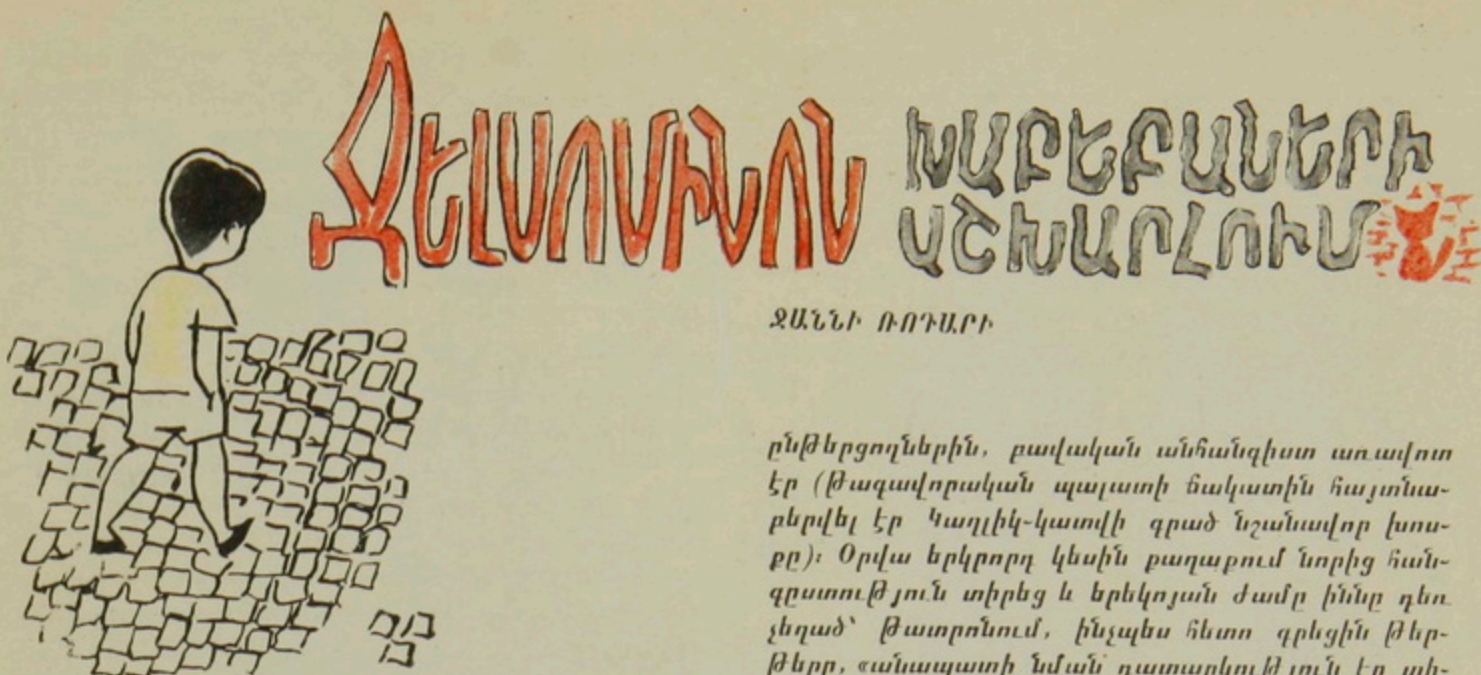 Ջելսոմինոն
ԽԱԲԵԲԱՆԵՐԻ
ԱՇԽԱՐՀՈՒՄ
ՋԱՆՆԻ ՌՈԴԱՐԻ
ընթերցողներին, բավական անհանգիստ առավոտ
էր (Թագավորական պալատի ճակատին հայտնա-
բերվել էր Կաղլիկ-կատվի գրած նշանավոր խոս-
քը)։ Օրվա երկրորդ կեսին քաղաքում նորից հան-
գըստություն տիրեց և երեկոյան ժամը իննը դեռ
չեղած՝ Թատրոնում, ինչպես հետո գրեցին թեր-
թերը, «անապատի նման դատարկություն էր տի-